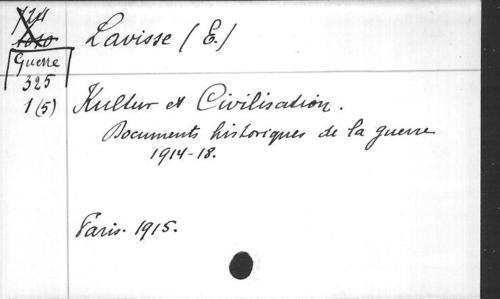 Lavisse (E.)
Guerre
325
1 (5)
Kultur et Civilisation.
Documents historiques de la guerre
1914-18.
Paris. 1915.